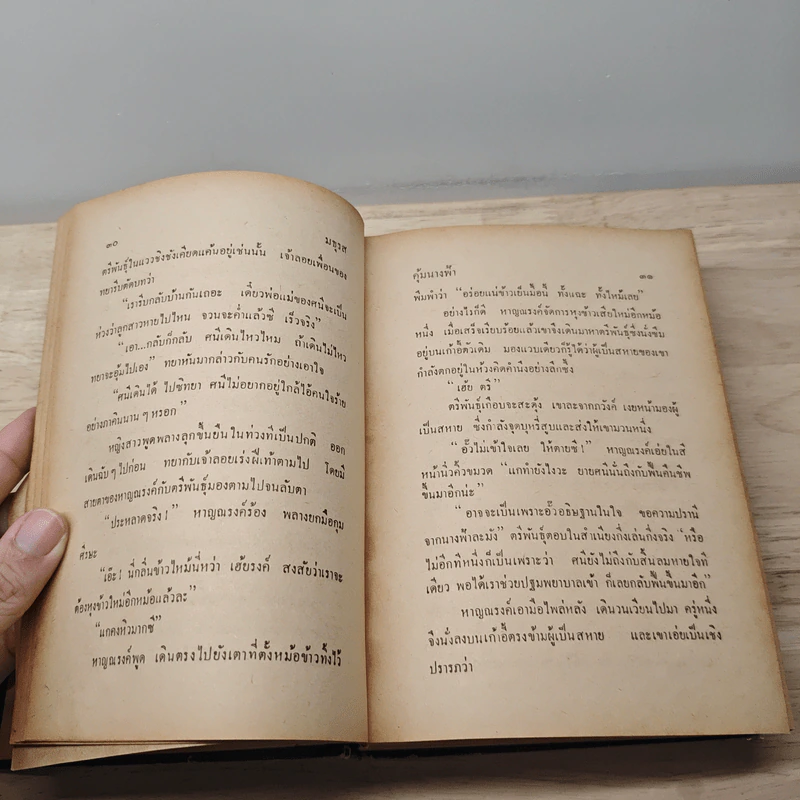 ๓๐ มธุรส
ตรีพันธุ์ในแววชิงชังเคียดแค้นอยู่เช่นนั้น เจ้าลอยเพื่อนของ
ทยารีบตัดบทว่า
“เรารีบกลับบ้านกันเถอะ เดี๋ยวพ่อแม่ของศนีจะเป็น
ห่วงว่าลูกสาวหายไปไหน จวนจะค่ำแล้วซี เร็วจริง”
“เอา...กลับก็กลับ ศนีเดินไหวไหม ถ้าเดินไม่ไหว
ทยาจะอุ้มไปเอง” ทยาหันมากล่าวกับคนรักอย่างเอาใจ
“ศนีเดินได้ ไปซีทยา ศนีไม่อยากอยู่ใกล้ไอ้คนใจร้าย
อย่างภาคินนาน ๆ หรอก”
หญิงสาวพูดพลางลุกขึ้นยืนในท่วงทีเป็นปกติ ออก
เดินฉับ ๆ ไปก่อน ทยากับเจ้าลอยเร่งฝีเท้าตามไป โดยมี
สายตาของหาญณรงค์กับตรีพันธุ์มองตามไปจนลับตา
“ประหลาดจริง !” หาญณรงค์ร้อง พลางยกมือกุม
ศีรษะ
“เอ๊ะ ! นี่กลิ่นข้าวไหม้นี่หว่า เฮ้ยรงค์ สงสัยว่าเราจะ
ต้องหุงข้าวใหม่อีกหม้อแล้วละ”
“แกคงหิวมากซี”
หาญณรงค์พูด เดินตรงไปยังเตาที่ตั้งหม้อข้าวทิ้งไว้
คุ้มนางฟ้า ๓๑
พึมพำว่า “อร่อยแน่ข้าวเย็นมื้อนี้ ทั้งแฉะ ทั้งไหม้เลย”
อย่างไรก็ดี หาญณรงค์จัดการหุงข้าวเสียใหม่อีกหม้อ
หนึ่ง เมื่อเสร็จเรียบร้อยแล้วเขาจึงเดินมาหาตรีพันธุ์ซึ่งนั่งซึม
อยู่บนเก้าอี้ตัวเดิม มองแวบเดียวก็รู้ได้ว่าผู้เป็นสหายของเขา
กำลังตกอยู่ในห้วงคิดคำนึงอย่างลึกซึ้ง
“เฮ้ย ตรี”
ตรีพันธุ์เกือบจะสะดุ้ง เขาละจากภวังค์ เงยหน้ามองผู้
เป็นสหาย ซึ่งกำลังจุดบุหรี่สูบและส่งให้เขามวนหนึ่ง
“อั๊วไม่เข้าใจเลย ให้ตายซี !” หาญณรงค์เอ่ยในสี
หน้านิ่วคิ้วขมวด “แกทำยังไงวะ ยายศนีนั่นถึงกับฟื้นคืนชีพ
ขึ้นมาอีกน่ะ”
“อาจจะเป็นเพราะอั๊วอธิษฐานในใจ ขอความปรานี
จากนางฟ้าละมัง” ตรีพันธุ์ตอบในสำเนียงกึ่งเล่นกึ่งจริง ‘หรือ
ไม่อีกทีหนึ่งก็เป็นเพราะว่า ศนียังไม่ถึงกับสิ้นลมหายใจที
เดียว พอได้เราช่วยปฐมพยาบาลเข้า ก็เลยกลับฟื้นขึ้นมาอีก”
หาญณรงค์เอามือไพล่หลัง เดินวนเวียนไปมา ครู่หนึ่ง
จึงนั่งลงบนเก้าอี้ตรงข้ามผู้เป็นสหาย และเขาเอ่ยเป็นเชิง
ปรารภว่า